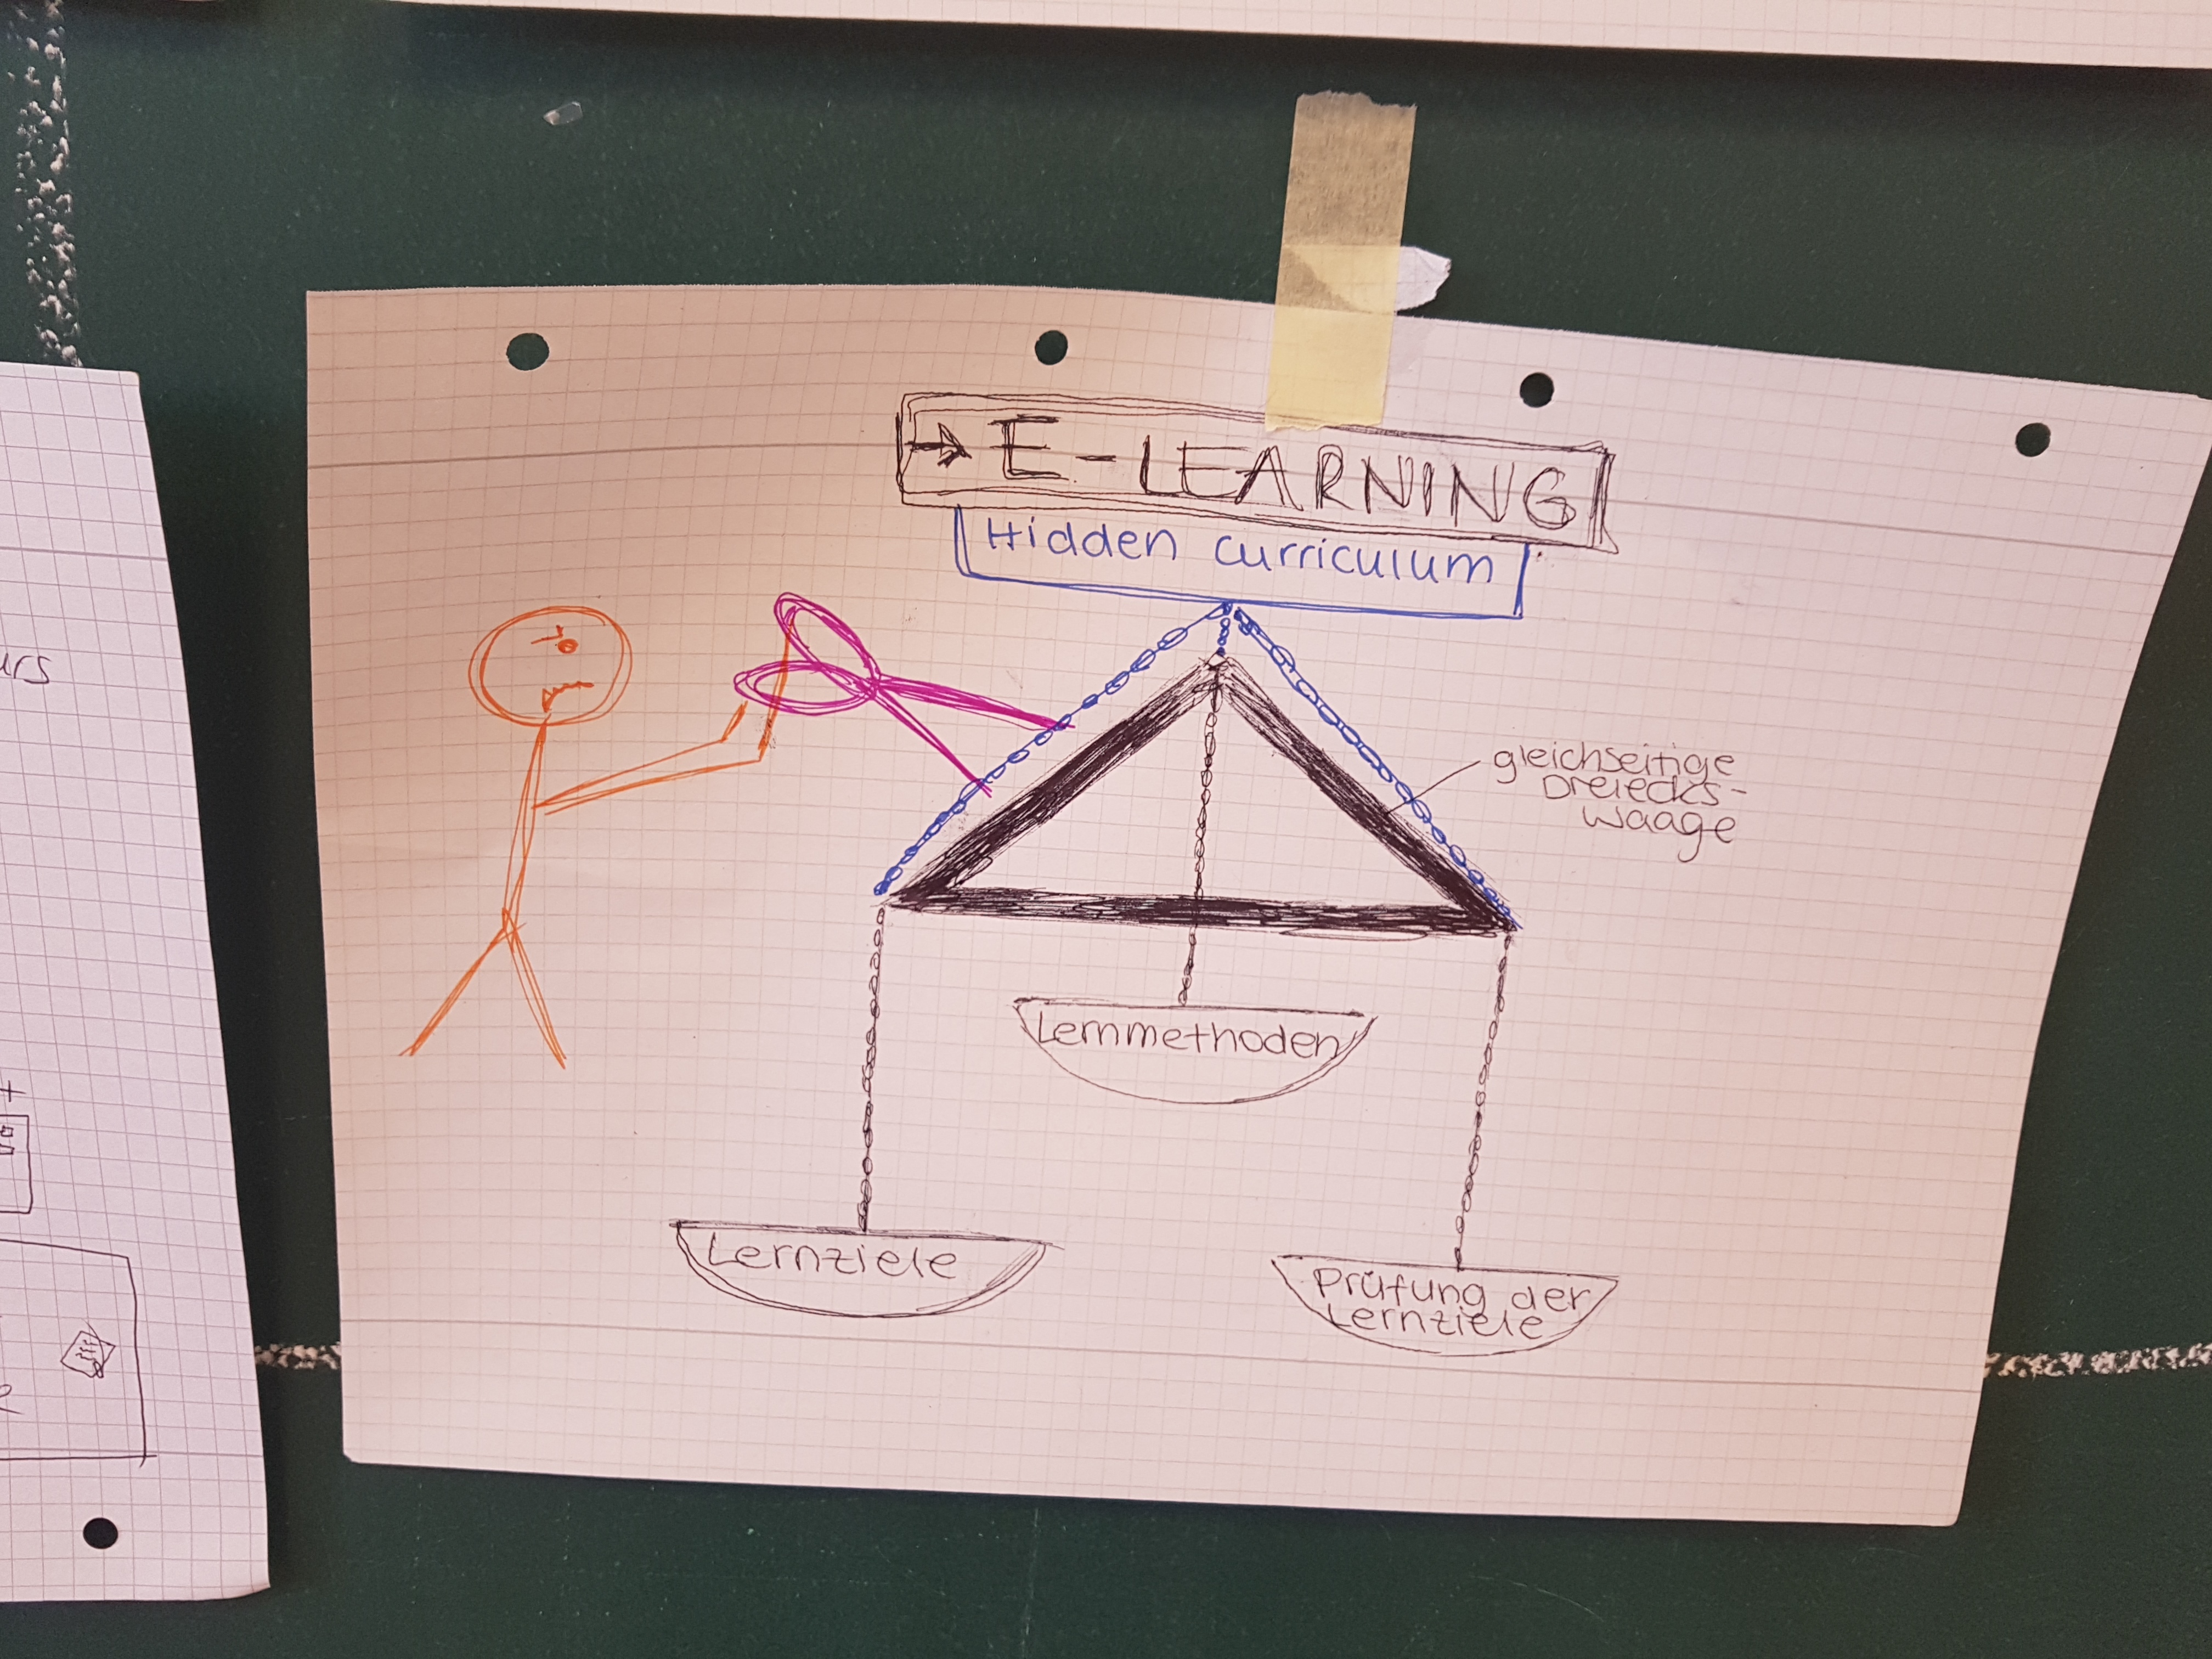 → E-LEARNING
Hidden curriculum
gleichseitige
Dreiecks-
waage
Lernmethoden
Lernziele
Prüfung der
Lernziele